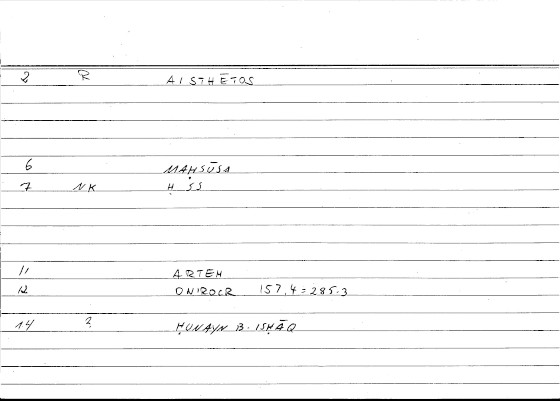 2 R AISTHĒTOS
6 MAḤSŪSA
7 NK Ḥ SS
11 ARTEM
12 ONIROCR 157,4 = 285.3
14 ? ḤUNAYN B. ISḤĀQ